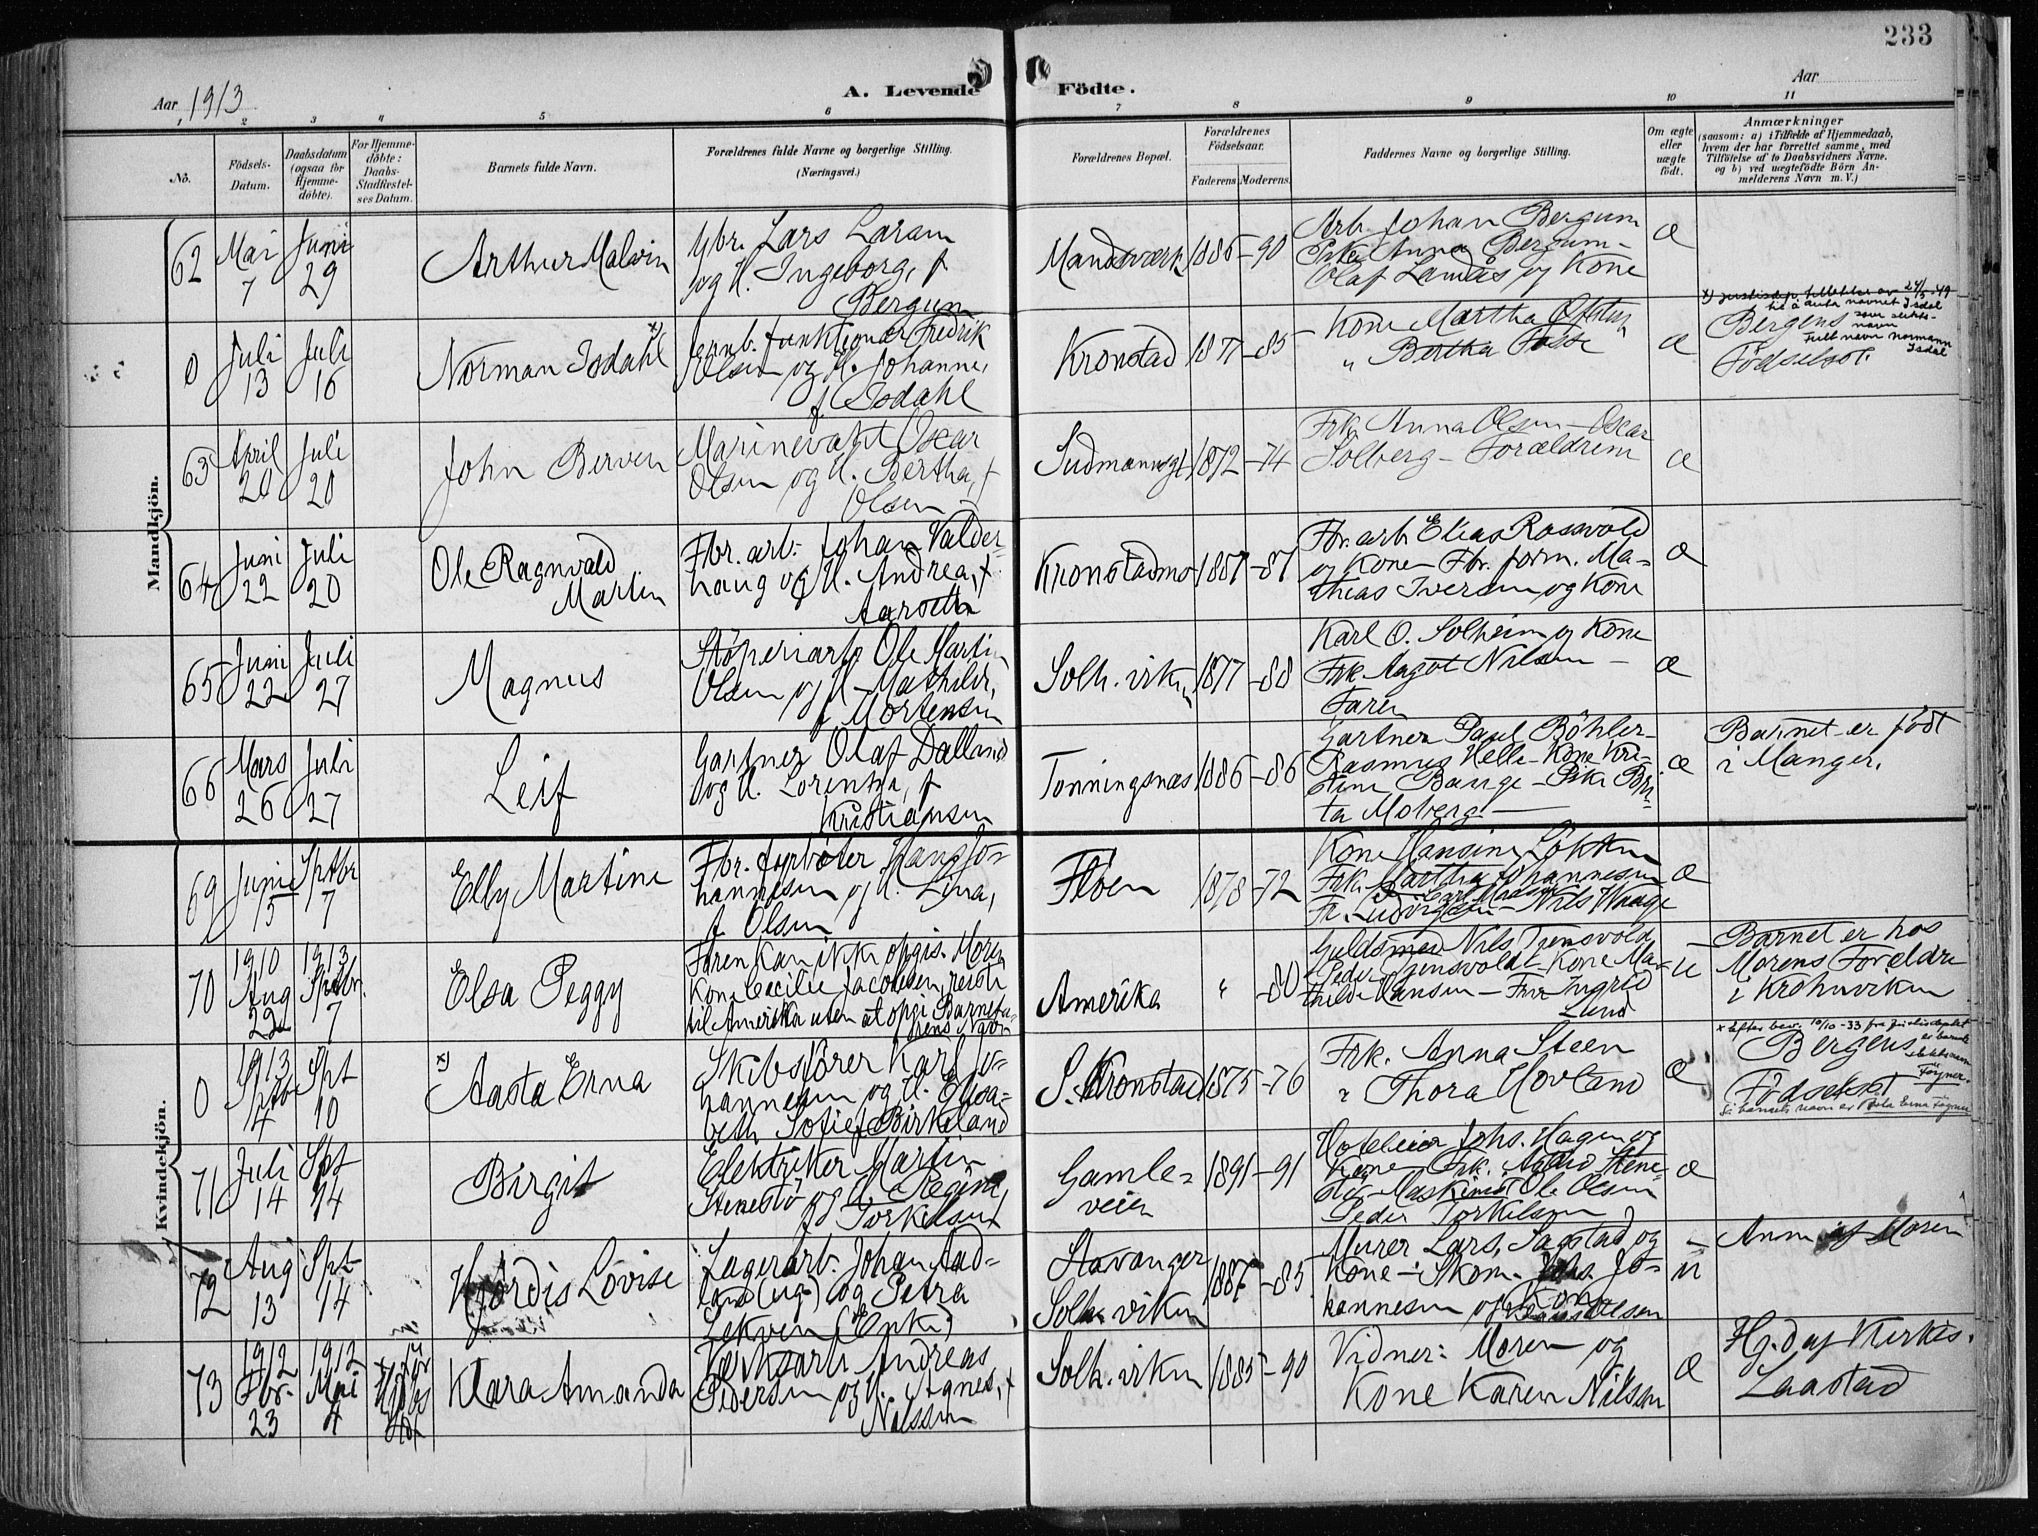 233
Aar 1913
A. Levende Födte.
Aar
1 2 3 4 5 6 7 8 9 10 11
No.
Födsels-Datum.
Daabsdatum (ogsaa for Hjemme-döbte).
For Hjemme-döbte: Daabs-Stadfæstel-ses Datum.
Barnets fulde Navn.
Forældrenes fulde Navne og borgerlige Stilling.
(Næringsvei.)
Forældrenes Bopæl.
Forældrenes Födselsaar.
Faderens. Moderens.
Faddernes Navne og borgerlige Stilling.
Om ægte eller uægte födt.
Anmærkninger
(saasom: a) i Tilfælde af Hjemmedaab,
hvem der har forrettet samme, med
Tilföielse af to Daabsvidners Navne.
og b) ved uægtefödte Börn An-
melderens Navn m. V.)
Mandkjön.
62 Mai 7 Juni 29
Arthur Malvin
Lars Larsen
og H. Ingeborg, f
Bergum
Mandsverk 1886-90
Arb. Johan Bergum
Pike Anna Bergum-
Olaf Landås og Kone
æ
0 Juli 13 Juli 16
Norman Isdahl x)
Jernb. funktionær Fredrik
Olsen og H. Johanne,
f. Isdahl
Kronstad 1877-85
Kone Martha
" Bertha Fosse
æ
x) Justisdep. tillatelse av 24/5-49
til å anta navnet Isdal
som slekts-
navn
Fullt navn Normann
Isdal
Bergens
Födselsst.
63 April 20 Juli 20
John Berven
Marinevagt Oscar
Olsen og H. Bertha, f
Olsen
Sudmannsgt 1872-74
Frk. Anna Olsen-Oscar
Solberg-Forældrene
æ
64 Juni 22 Juli 20
Ole Ragnvald
Martin
Fbr. arb. Johan Valder-
haug og H. Andrea, f.
Aarseth
Kronstadmo 1887-87
Fbr. arb. Elias Rosvold
og Kone Fbr. form. Ma-
thias Iversen og Kone
æ
65 Juni 22 Juli 27
Magnus
Stöperiarb Ole Martin
Olsen og H. Mathilde,
f Mortensen
Solh. viken 1877-88
Karl O. Solheim og Kone
Frk. Aagot Nilsen-
Faren
æ
66 Mars 26 Juli 27
Leif
Gartner Olaf Dallund
og H. Lorentze, f
Kristiansen
Tonningsnæs 1886-86
Gartner Paul Böhler-
Rasmus Helle-Kone Kri-
stine Bauge-Pike Bri-
ta Moberg
æ
Barnet er födt
i Manger.
Kvindekjön.
69 Juni 15 Sptbr 7
Elly Martine
Fbr. Hans Jo-
hannesen og H. Lina,
f. Olsen
Flöen 1878-72
Kone Hansine Lökken
Frk. Martha Johannesen
Fr. Ludvigsen-Nils Waage
æ
70 1910 Aug 22 1913 Sptbr. 7
Elsa Peggy
Faren kan ikke opgis. Moren
Kone Cecilie Jacobsen, reiste
til Amerika uten at opgi Barnefa-
derens Navn
Amerika " -80
Guldsmed Nils Tjensvold
Peder Tjensvold-Kone Ma-
thilde Hansen-Frue Ingrid
Lund
u
Barnet er hos
Morens Foreldre
i Krohnviken
0 1913 Sptbr 4 Spt 10
x) Aasta Erna
Skibsförer Karl Jo-
hannesen og H. Elisa-
beth Sofie f Birkeland
S. Kronstad 1875-76
Frk. Anna Steen
" Thora Hovland
æ
x Efter bev. 10/10-33 fra Justisdeptet
er barnets slektsnavn Föyner.
Bergens
Födselsst
Barnets navn er Asta Erna Föyner
71 Juli 14 Spt 14
Birgit
Elektriker Martin
Stenestö og H. Regine,
f Torkelsen
Gamle-
veien
1891-91
Hoteleier Johs. Hagen og
Kone Frk. Astrid Stene-
stö-Maskinist Ole Olsen
Peder Torkelsen
æ
72 Aug 13 Spt 14
Hjördis Lovise
Lagerarb. Johan Aad-
land (ug.) og Petra
Lekven (Enke)
Stavanger
Solh. viken
1887-85
Murer Lars Sagstad og
Kone-Skom. Johs. Jo-
hannesen og Kone
u
Anm af Moren
73 1912 Fbr. 23 1912 Mai 4
Klara Amanda
Verksarb. Andreas
Pedersen og H. Agnes, f
Nilssen
Solh. viken 1885-90
Vidner: Moren og
Kone Karen Nilsen
æ
Hj. d af Kirkes.
Laastad